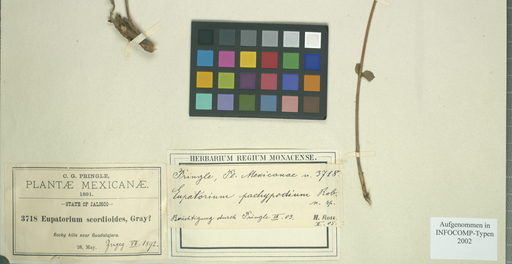 C. G. PRINGLE,
PLANTÆ MEXICANÆ.
1891.
STATE OF JALISCO
3718 Eupatorium scordioides, Gray?
Rocky hills near Guadalajara.
28, May.
HERBARIUM REGIUM MONACENSE.
Pringle, Pl. Mexicanae n. 3718.
Eupatorium pachypodium Rob.
n. sp.
durch Pringle
H. Ross
Aufgenommen in
INFOCOMP-Typen
2002